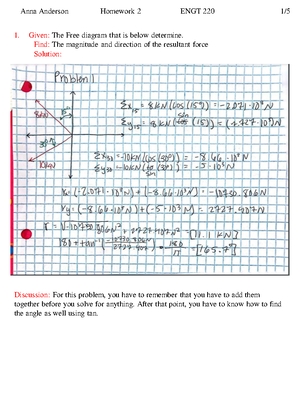 Anna Anderson Homework 2 ENGT 220 1/5
1. Given: The Free diagram that is below determine.
Find: The magnitude and direction of the resultant force
Solution:
Problem 1
8kN
15°
30°
10kN
Σx15 = 8kN(cos(15°)) = -2.071·10³N
Σy15 = 8kN(sin(15)) = (7.727·10³N)
Σx30 = -10kN(cos(30°)) = -8.66·10³N
Σy30 = -10kN(sin(30°)) = -5·10³N
Vx = (-2.071·10³N)+(-8.66·10³N) = -10730.806N
Vy = (-8.66·10³N)+(-5·10³N) = 2727.407N
= [11.1 kN]
= [165.7°]
Discussion: For this problem, you have to remember that you have to add them
together before you solve for anything. After that point, you have to know how to find
the angle as well using tan.